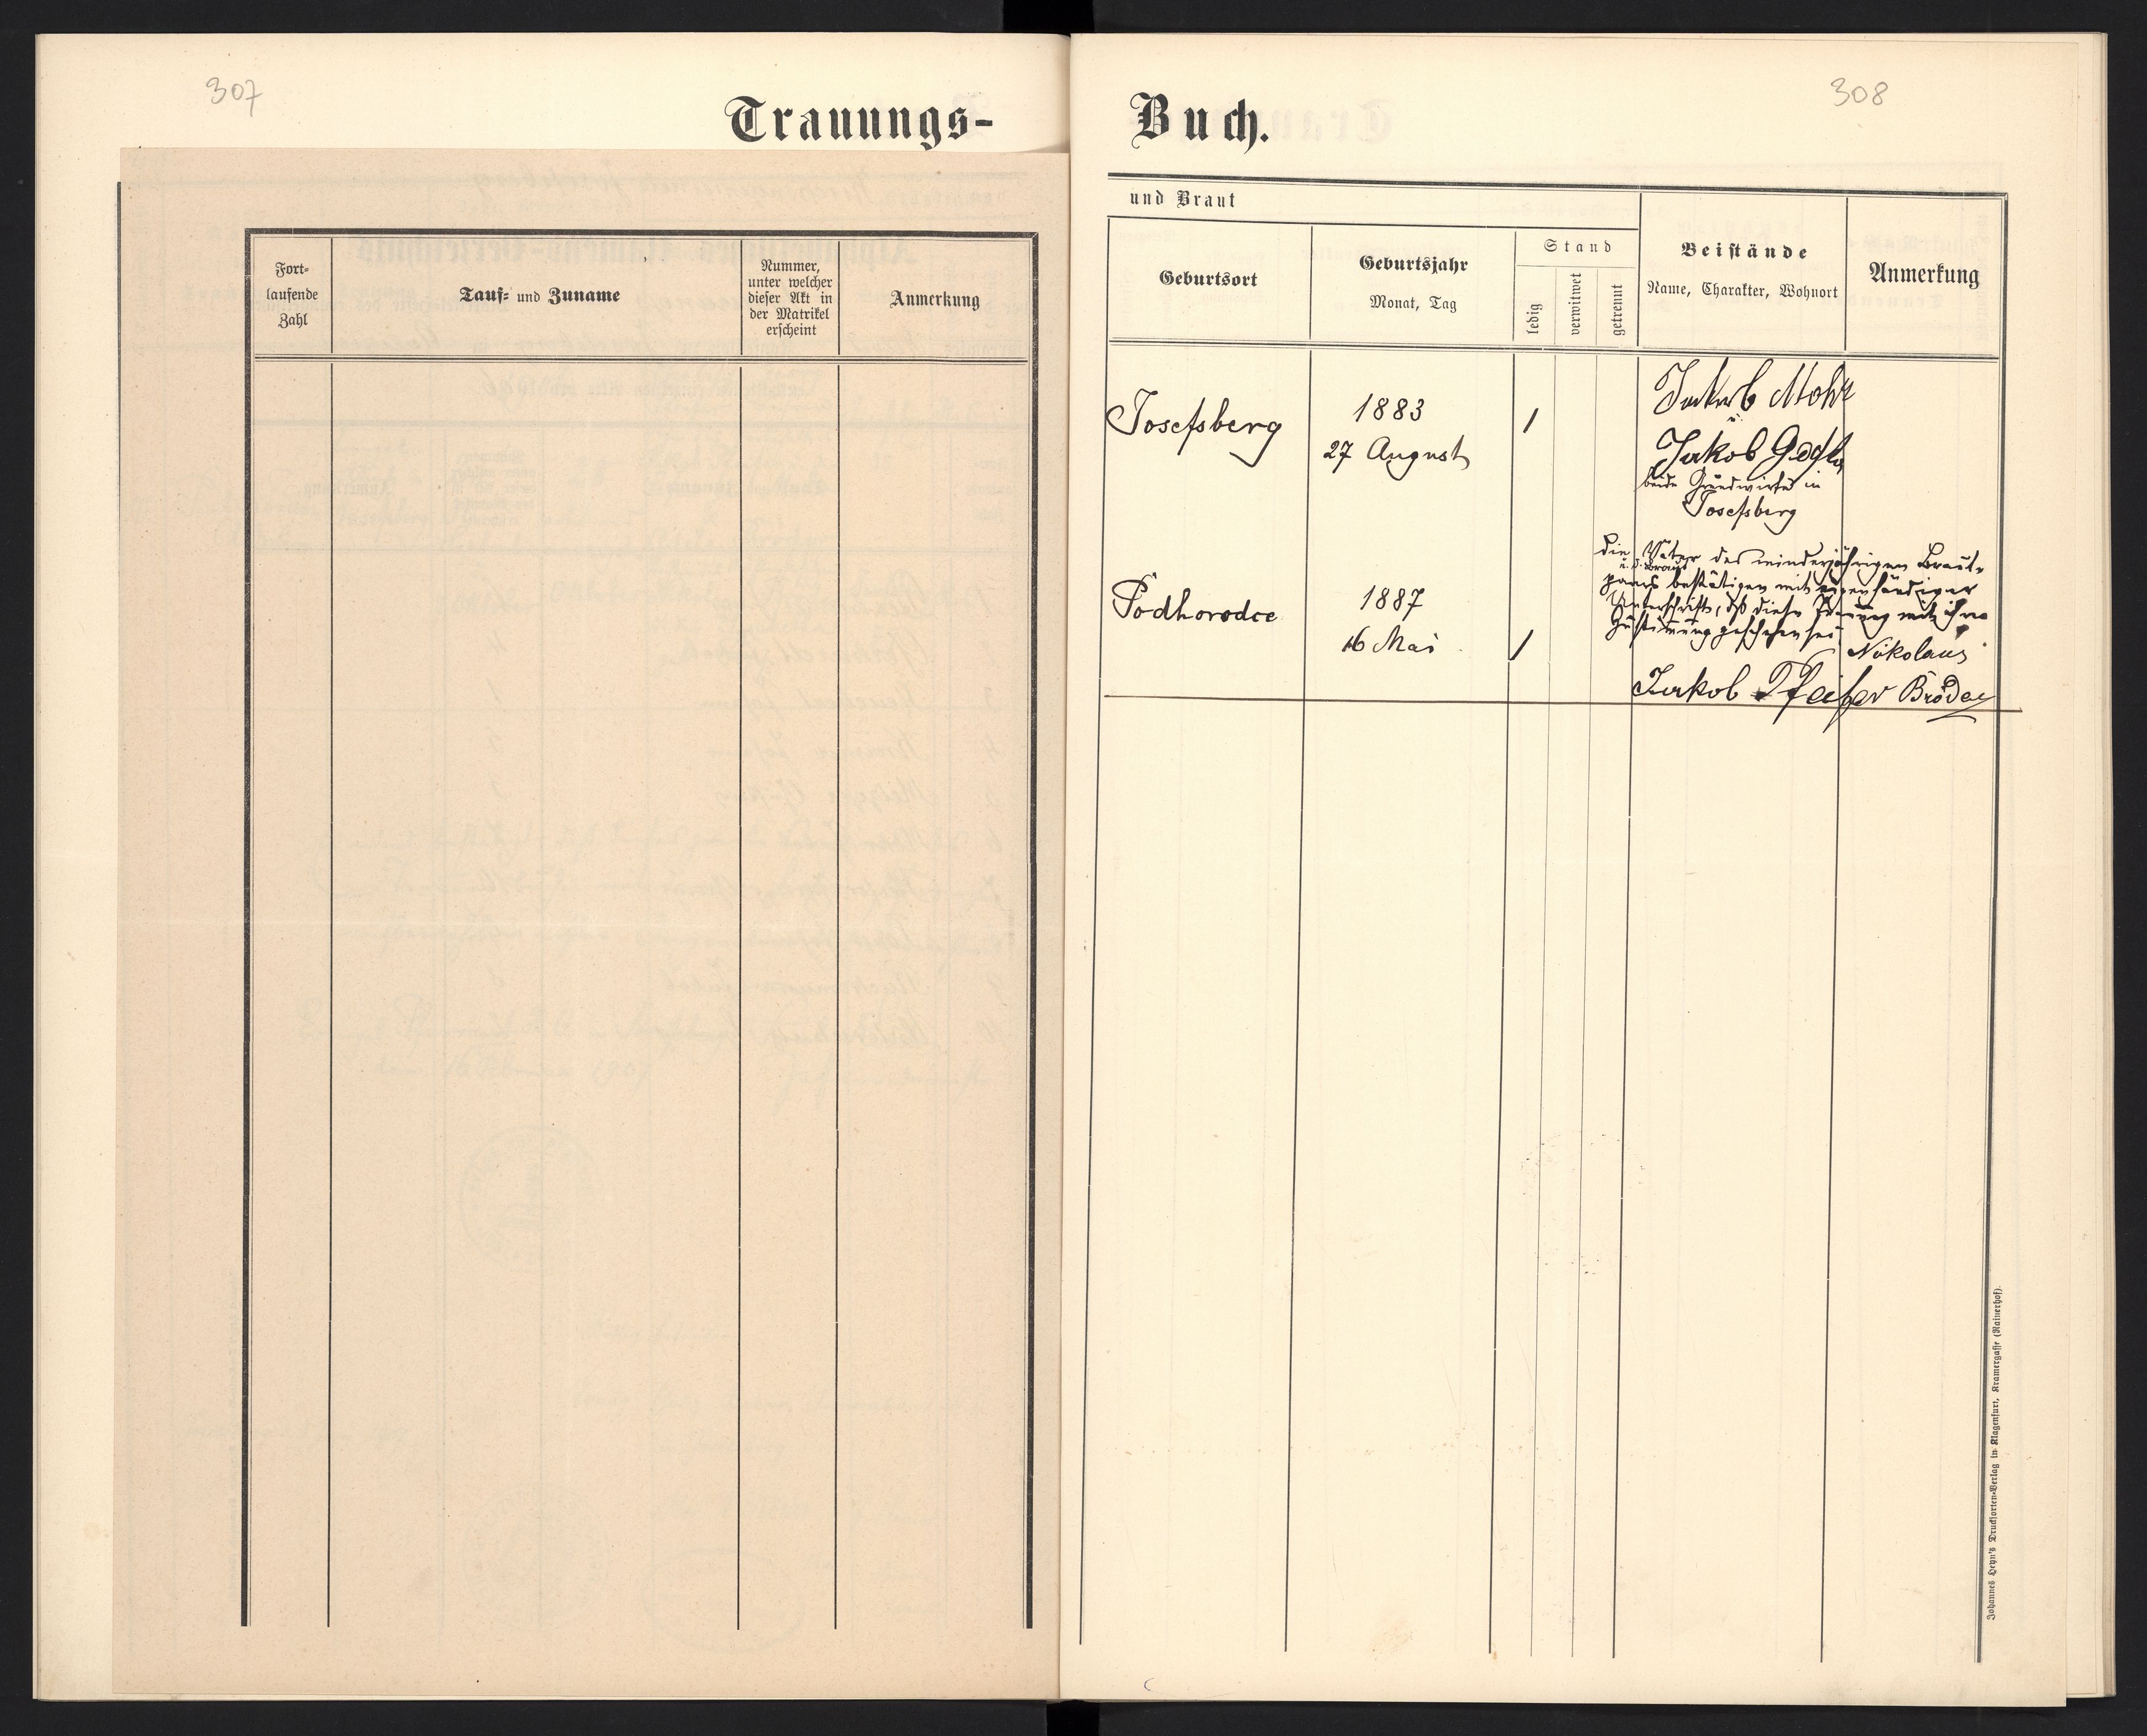 307
308
Trauungs-
Buch.
Fort-
laufende
Zahl
Tauf- und Zuname
Nummer,
unter welcher
dieser Akt in
der Matrikel
erscheint
Anmerkung
und Braut
Geburtsort
Geburtsjahr
Monat, Tag
Stand
ledig
verwitwet
getrennt
Beistände
Name, Charakter, Wohnort
Anmerkung
Josefsberg
1883
27 August
/
Jakob Mohr
u.
Jakob
beide Grundwirte in
Josefsberg
Podhorodce
1887
16 Mai
/
Die Väter des minderjährigen Braut-
u. d. Braut
paars bestätigen mit eigenhändiger
Unterschrift, daß diese Trauung mit ihrer
Zustimmung geschehen sei
Nikolaus
Jakob Pfeifer Bröder
Johannes Heyn's Drucksorten-Verlag in Klagenfurt, Kramergasse (Rainerhof).